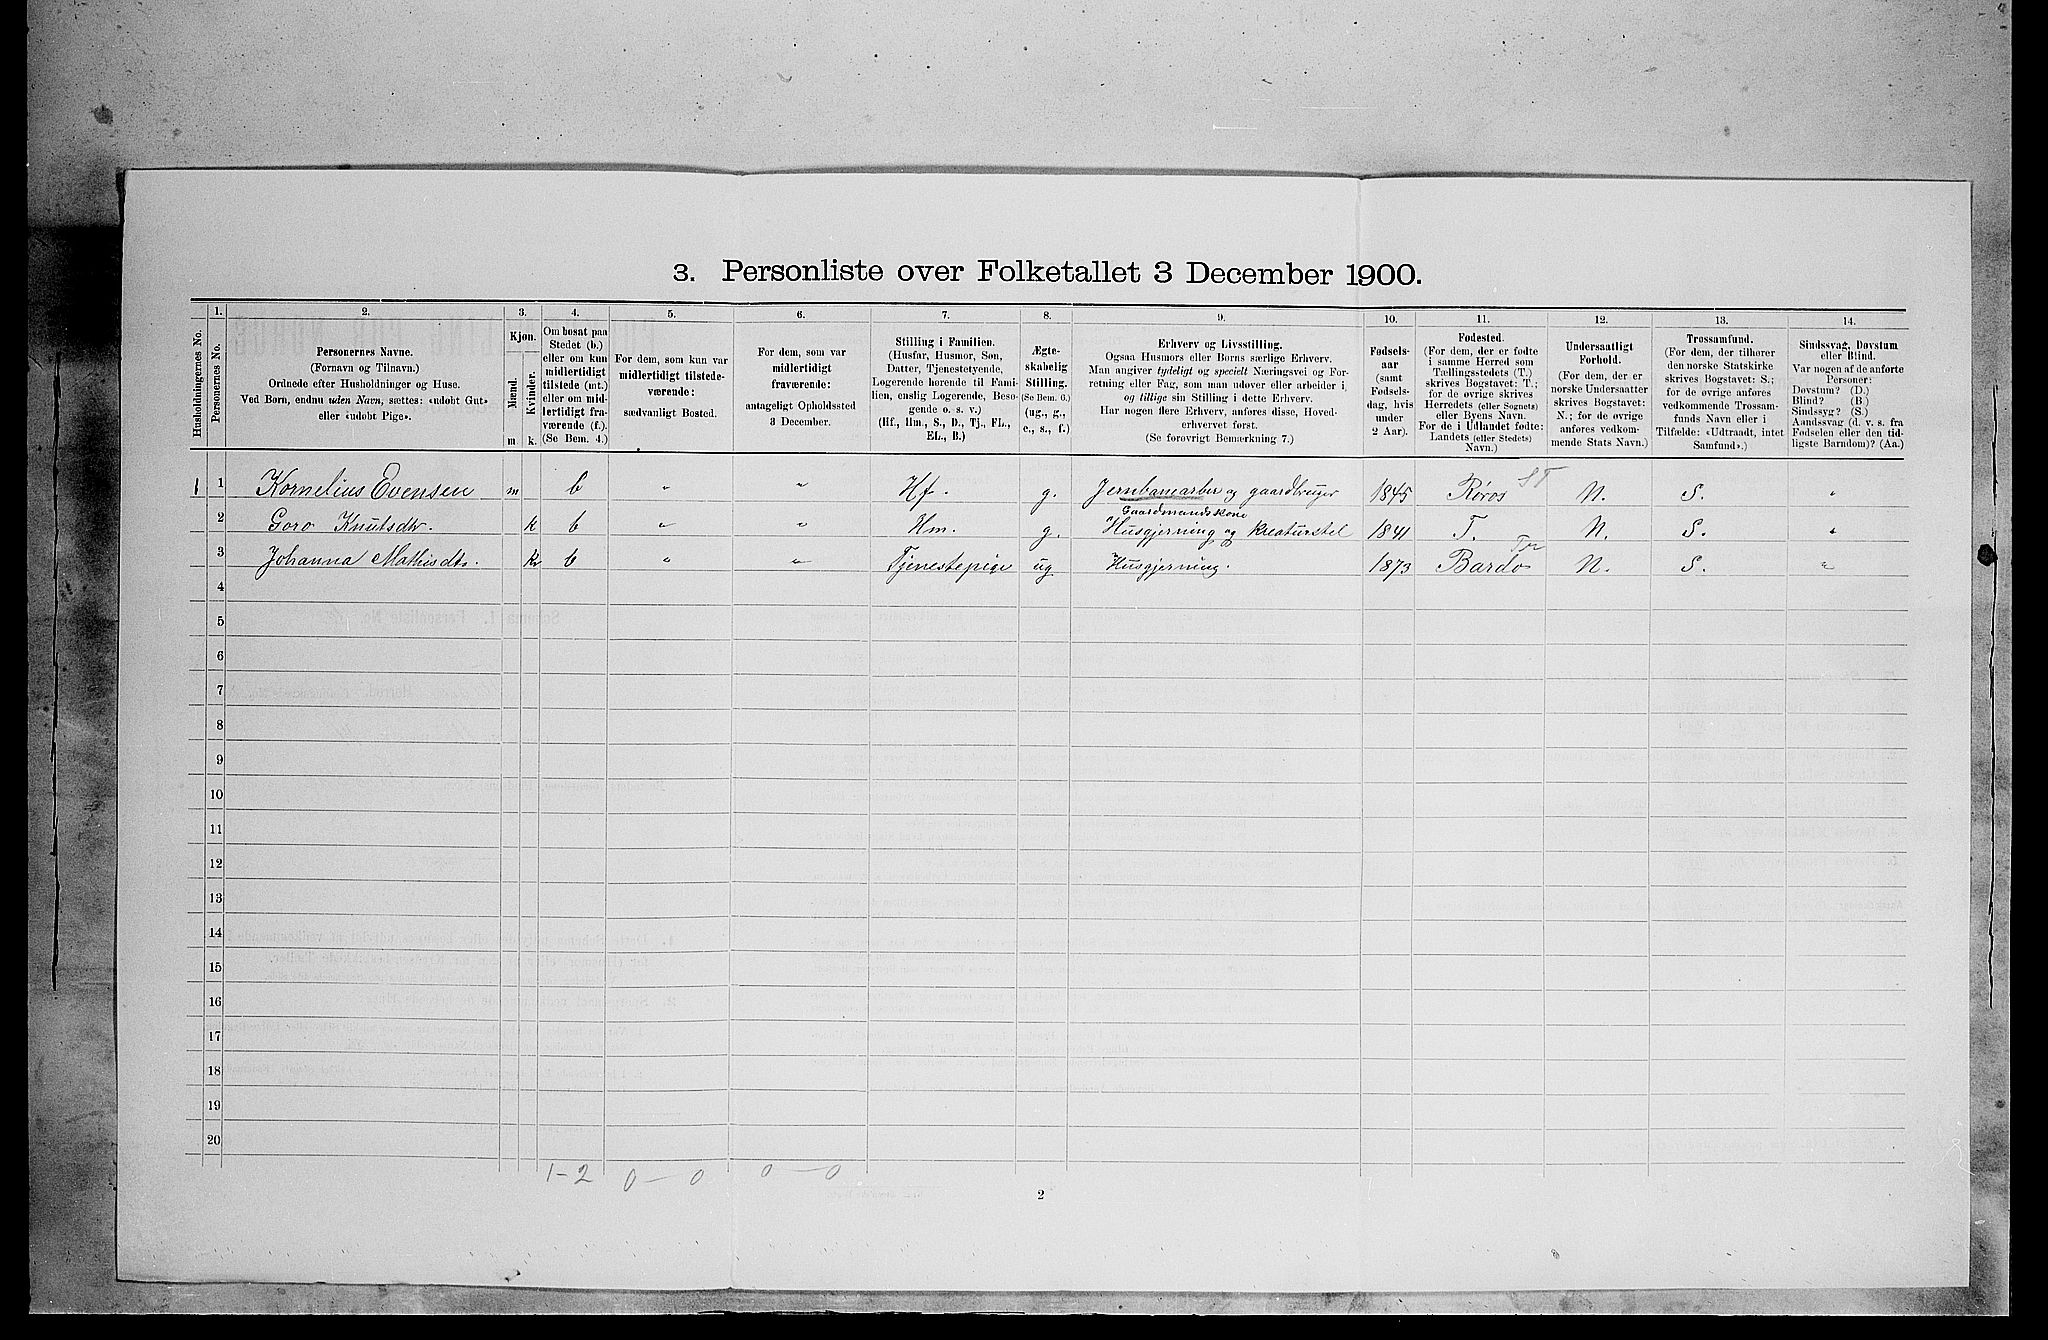 3. Personliste over Folketallet 3 December 1900.
Husholdningernes No.
1.
Personernes No.
2.
Personernes Navne.
(Fornavn og Tilnavn.)
Ordnede efter Husholdninger og Huse.
Ved Børn, endnu uden Navn, sættes: «udøbt Gut»
eller «udøbt Pige».
3.
Kjøn.
Mænd.
m
Kvinder.
k.
4.
Om bosat paa
Stedet (b.)
eller om kun
midlertidigt
tilstede (mt.)
eller om mid-
lertidigt fra-
værende (f.).
(Se Bem. 4.)
5.
For dem, som kun var
midlertidigt tilstede-
værende:
sædvanligt Bosted.
6.
For dem, som var
midlertidigt
fraværende:
antageligt Opholdssted
3 December.
7.
Stilling i Familien.
(Husfar, Husmor, Søn,
Datter, Tjenestetyende,
Logerende hørende til Fami-
lien, enslig Logerende, Besø-
gende o. s. v.)
(Hf., Hm., S., D., Tj., FL.,
EL., B.)
8.
Ægte-
skabelig
Stilling.
(Se Bem. 6.)
(ug., g.,
e., s., f.)
9.
Erhverv og Livsstilling.
Ogsaa Husmors eller Børns særlige Erhverv.
Man angiver tydeligt og specielt Næringsvei og For-
retning eller Fag, som man udøver eller arbeider i,
og tillige sin Stilling i dette Erhverv.
Har nogen flere Erhverv, anføres disse, Hoved-
erhvervet først.
(Se forøvrigt Bemærkning 7.)
10.
Fødsels-
aar
(samt
Fødsels-
dag, hvis
under
2 Aar).
11.
Fødested.
(For dem, der er fødte
i samme Herred som
Tællingsstedets (T.)
skrives Bogstavet: T.;
for de øvrige skrives
Herredets (eller Sognets)
eller Byens Navn.
For de i Udlandet fødte:
Landets (eller Stedets)
Navn.)
12.
Undersaatligt
Forhold.
(For dem, der er
norske Undersaatter
skrives Bogstavet:
N.; for de øvrige
anføres vedkom-
mende Stats Navn.)
13.
Trossamfund.
(For dem, der tilhører
den norske Statskirke
skrives Bogstavet: S.;
for de øvrige anføres
vedkommende Trossam-
funds Navn eller i
Tilfælde: «Udtraadt, intet
Samfund».)
14.
Sindssvag, Døvstum
eller Blind.
Var nogen af de anførte
Personer:
Døvstum? (D.)
Blind? (B.)
Sindssyg? (S.)
Aandssvag (d. v. s. fra
Fødselen eller den tid-
ligste Barndom)? (Aa.)
1 1 Kornelius Evensen m b " " Hf. g. Jernbanearber og gaardbruger 1845 Røros ST N. S. "
Gaardmandskone
2 Goro Knutsdtr. k b " " Hm. g. Husgjerning og kreaturstel 1841 T. N. S. "
3 Johanna Mathisdtr. k b " " Tjenestepige ug Husgjerning. 1873 Bardo Tr N. S. "
4
5
6
7
8
9
10
11
12
13
14
15
16
17
18
19
20
1-2 0-0 0-0
2